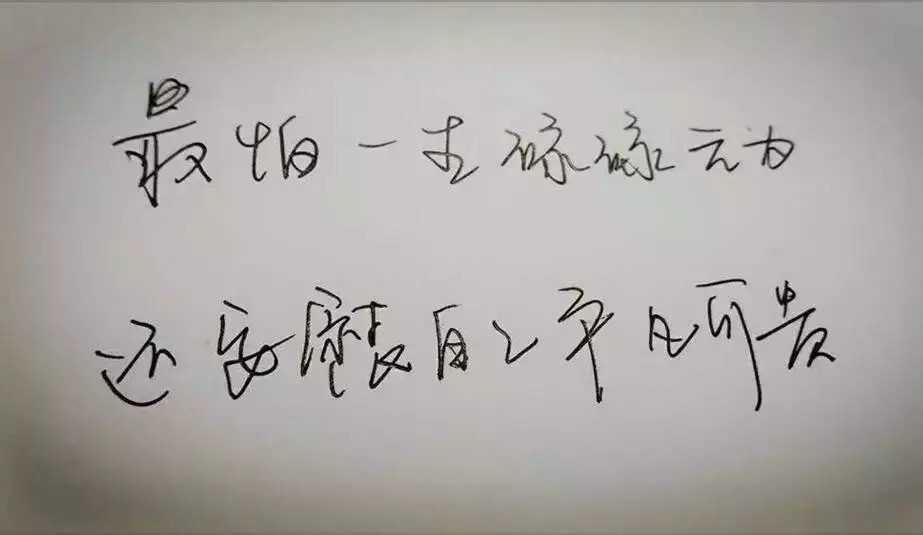 最怕一生碌碌无为
还安慰自己平凡可贵